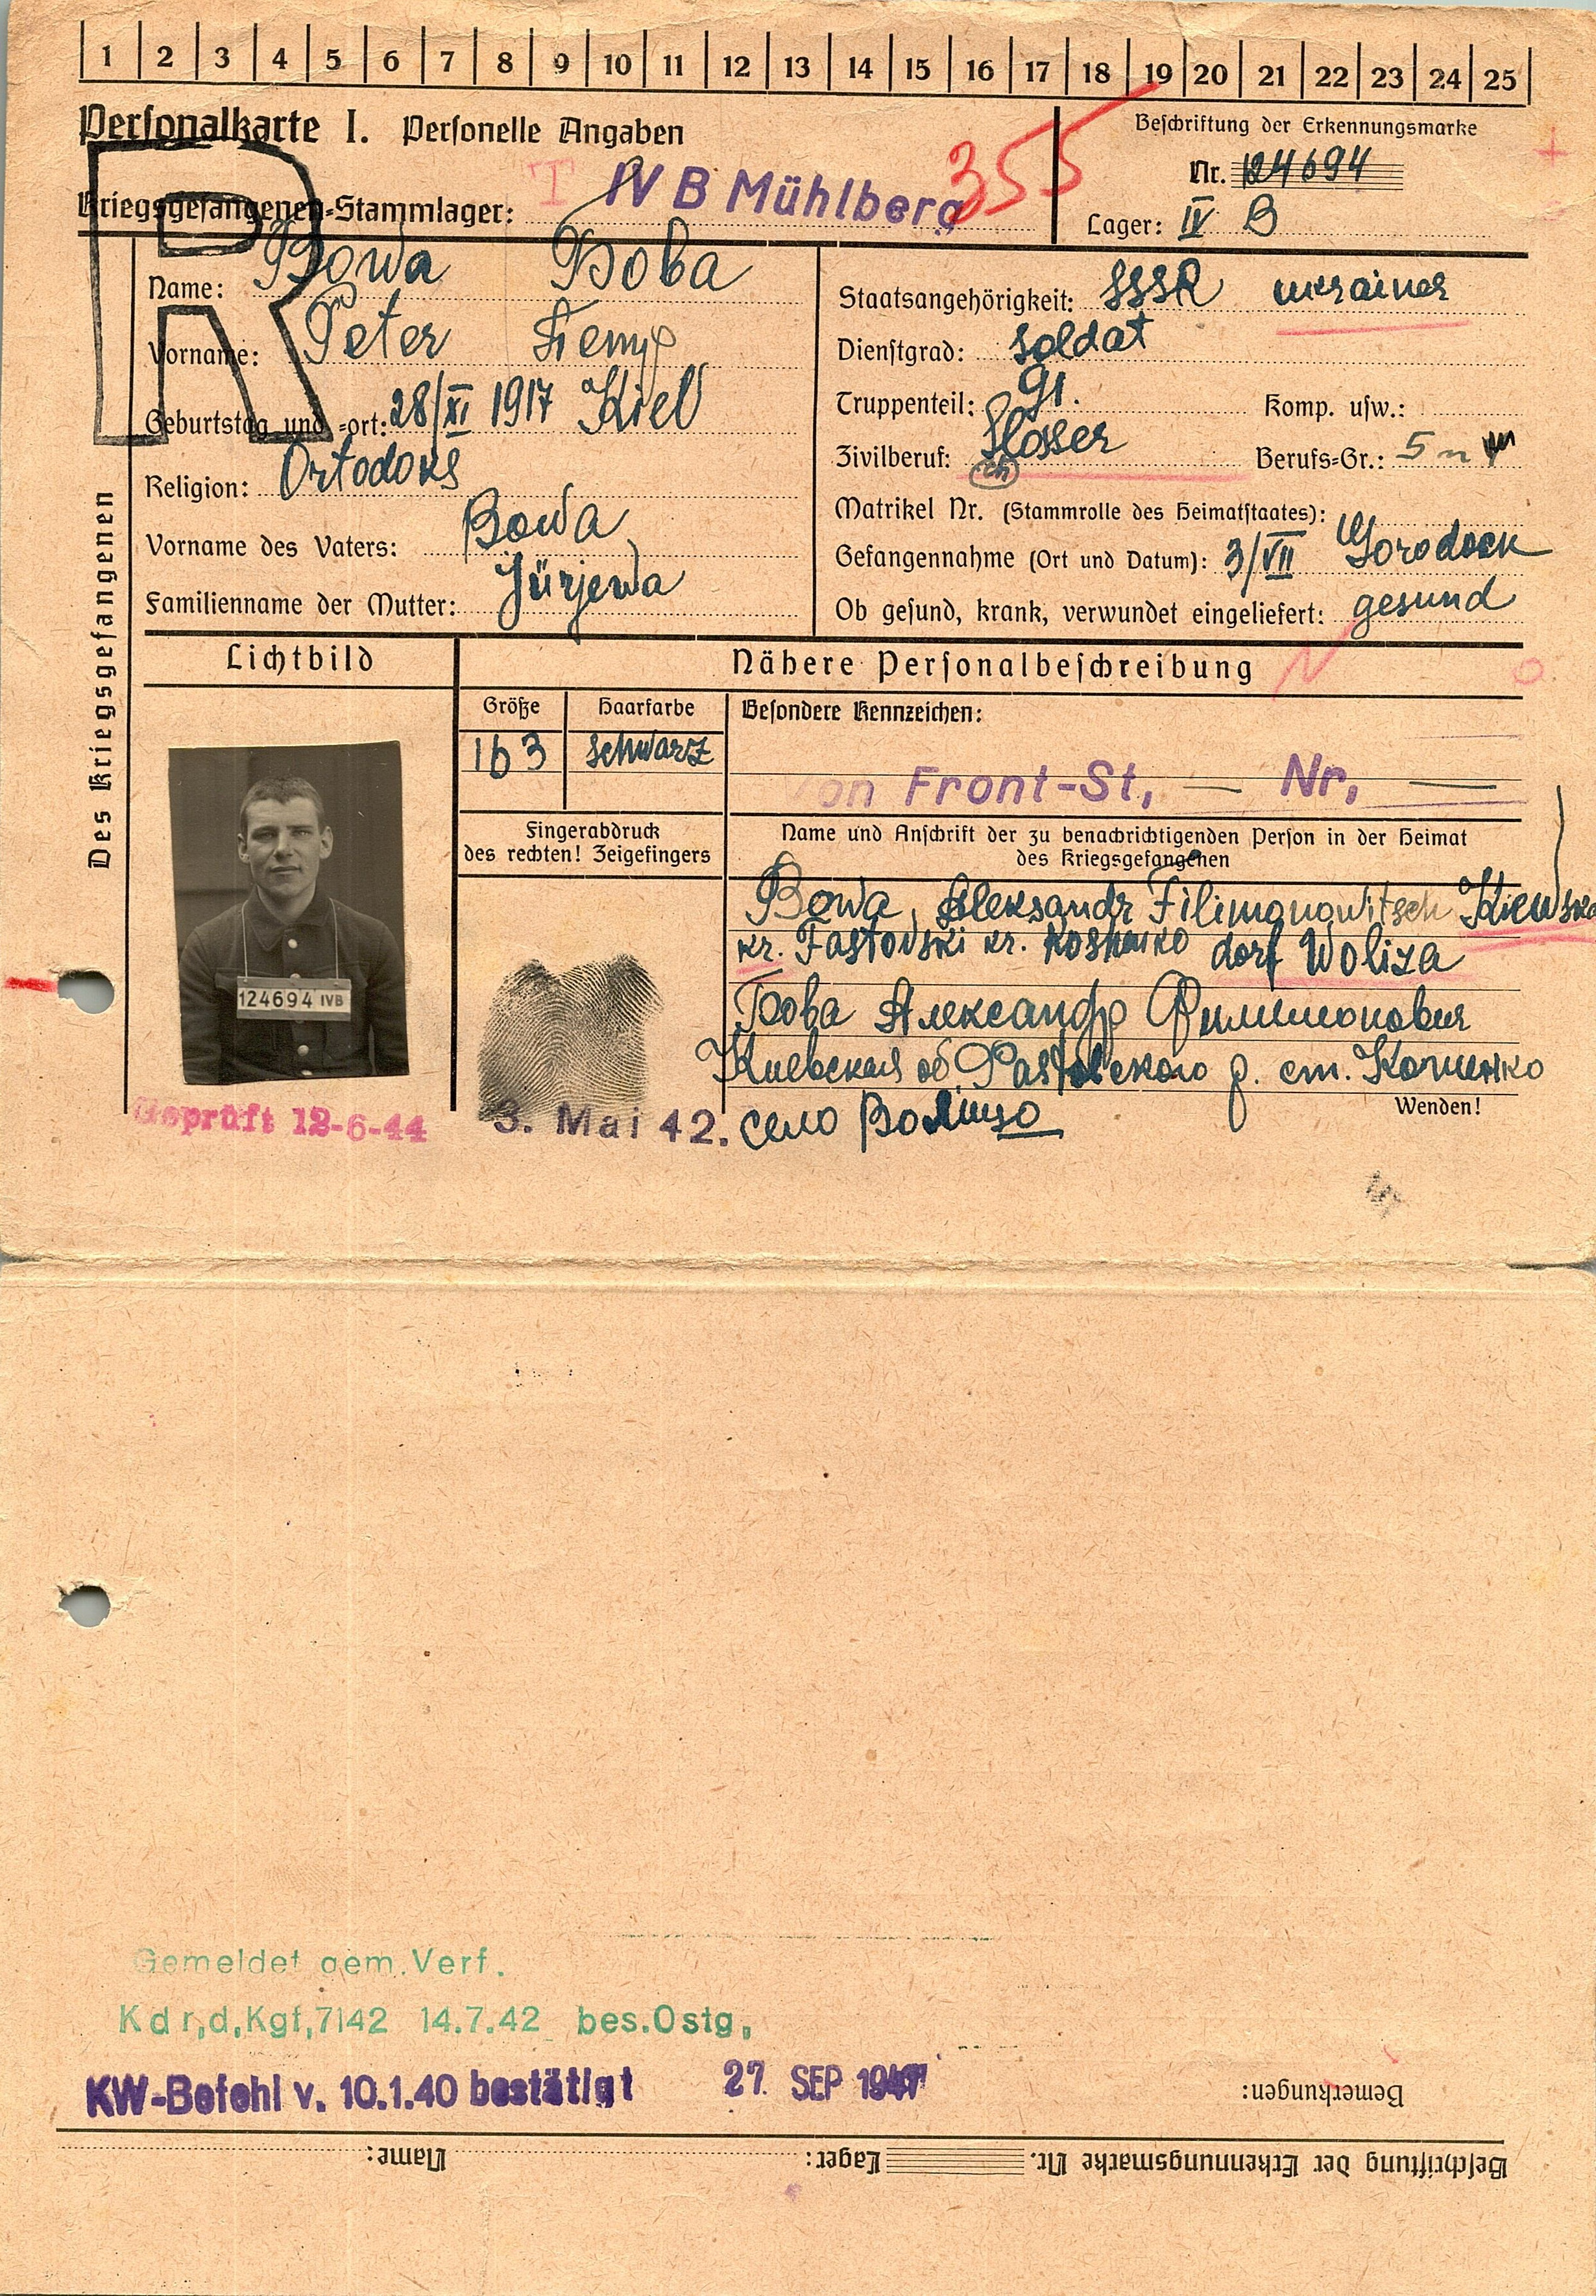 1 2 3 4 5 6 7 8 9 10 11 12 13 14 15 16 17 18 19 20 21 22 23 24 25
Personalkarte I. Personelle Angaben
Beschriftung der Erkennungsmarke
R
355
Kriegsgefangenen-Stammlager: IV B Mühlberg
Nr. 124694
Lager: IV B
Des Kriegsgefangenen
Name: Bowa Бова
Vorname: Peter Петр
Geburtstag und -ort: 28/XI 1917 Kiel
Religion: Ortodoks
Vorname des Vaters: Bowa
Familienname der Mutter: Jürjewa
Staatsangehörigkeit: SSSR ukrainer
Dienstgrad: Soldat
Truppenteil: 91. Komp. usw.:
Zivilberuf: Slosser Berufs-Gr.: 5
ch
Matrikel Nr. (Stammrolle des Heimatstaates):
Gefangennahme (Ort und Datum): 3/VII Gorodock
Ob gesund, krank, verwundet eingeliefert: gesund
Lichtbild
Nähere Personalbeschreibung
Größe Haarfarbe Besondere Kennzeichen:
163 schwarz
on Front-St, — Nr, —
Fingerabdruck
des rechten! Zeigefingers
Name und Anschrift der zu benachrichtigenden Person in der Heimat
des Kriegsgefangenen
Bowa, Aleksandr Filimonowitsch
kr. Fastovski kr. Koshanko dorf Woliza
Бова Александр Филимонович
Киевская об. Фастовского р. ст. Кошенко
Wenden!
село Волица
124694 IVB
Geprüft 12-6-44
3. Mai 42.
Gemeldet gem. Verf.
Kdr,d,Kgf,7142 14.7.42 bes.Ostg,
KW-Befehl v. 10.1.40 bestätigt 27. SEP
Bemerkungen:
Beschriftung der Erkennungsmarke Nr. Lager: Name: